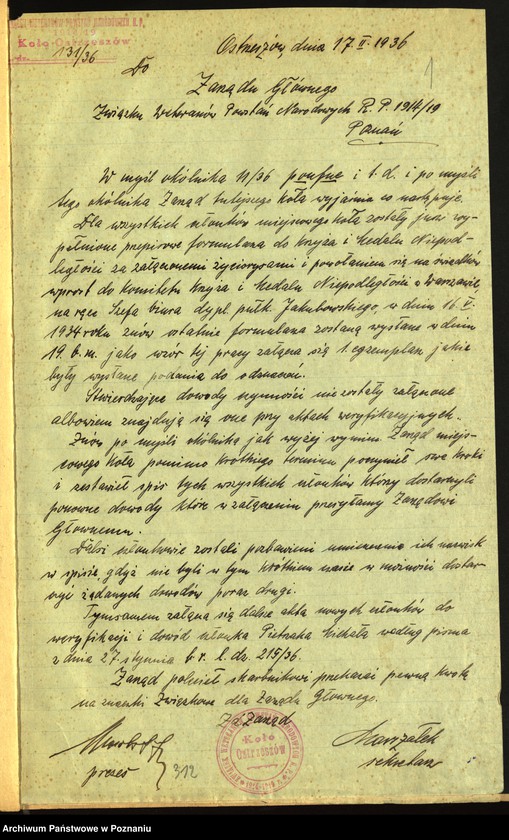 Koło Ostrzeszów
131/36
Ostrzeszów, dnia 17 II. 1936
1
Do
Zarządu Głównego
Związku Weteranów Powstań Narodowych R. P. 1914/19
Poznań
W myśl okólnika 11/36 poufne i t. d. i po myśli
tego okólnika Zarząd tutejszego Koła wyjaśnia co następuje.
Dla wszystkich członków miejscowego Koła zostały już wy-
pełnione papierowe formularza do Krzyża i Medalu Niepod-
ległości za załączeniem życiorysami i powołaniem się na świadków
wprost do Komitetu Krzyża i Medalu Niepodległości w Warszawie
na ręce Szefa biura dypl. pułk. Jakubowskiego, w dniu 16 V.
1934 roku znów ostatnie formularza zostaną wysłane w dniu
19. b. m. jako wzór tej pracy załącza się 1. egzemplarz jakie
były wysłane podania do odznaczeń.
Stwierdzające dowody czynności nie zostały załączone
albowiem znajdują się one przy aktach weryfikacyjnych.
Znów po myśli okólnika jak wyżej wymien. Zarząd miejs-
cowego Koła pomimo krótkiego terminu poczynił swe kroki
i zestawił spis tych wszystkich członków który dostarczyli
ponowne dowody które w załączeniu przesyłamy Zarządowi
Głównemu.
Dalsi członkowie zostali pozbawieni umieszczenia ich nazwisk
w spisie, gdyż nie byli w tym krótkim czasie w możności dostar-
czyć żądanych dowodów poraz drugi.
Tymsamem załącza się dalsze akta nowych członków do
weryfikacji i dowód członka Pietrzaka Michała według pisma
z dnia 27 stycznia b. r. l. dz. 215/36.
Zarząd polecił skarbnikowi przekazać pewną kwotę
na znaczki Związkowe dla Zarządu Głównego.
Za Zarząd
Koło
Ostrzeszów
Marszałek
prezes
312
sekretarz
Archiwum Państwowe w Poznaniu